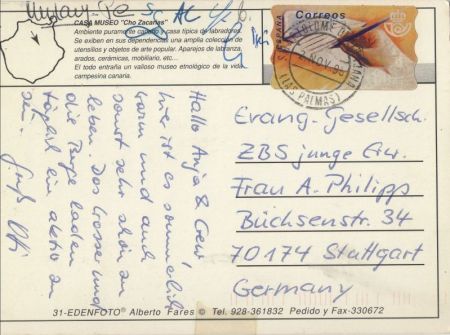 CASA MUSEO "Cho Zacarías"
Ambiente puramente canario y casa típica de labradores.
Se exiben en sus dependencias una amplia colección de
utensilios y objetos de arte popular. Aparejos de labranza,
arados, cerámica, mobiliario, etc...
El todo entraña un valioso museo etnológico de la vida
campesina canaria.
España
Correos
(LAS PALMAS)
Hallo Anja & Crew!
hier ist es sommerlich
warm und auch
sonst sehr schön zu
leben. Das Grosse und
die Berge laden
täglich ein aktiv zu
sein.
Gruß
Evang. Gesellsch.
ZBS junge Erw.
Frau A. Philipp
Büchsenstr. 34
70174 Stuttgart
Germany
31-EDENFOTO® Alberto Fares © Tel. 928-361832 Pedido y Fax-330672